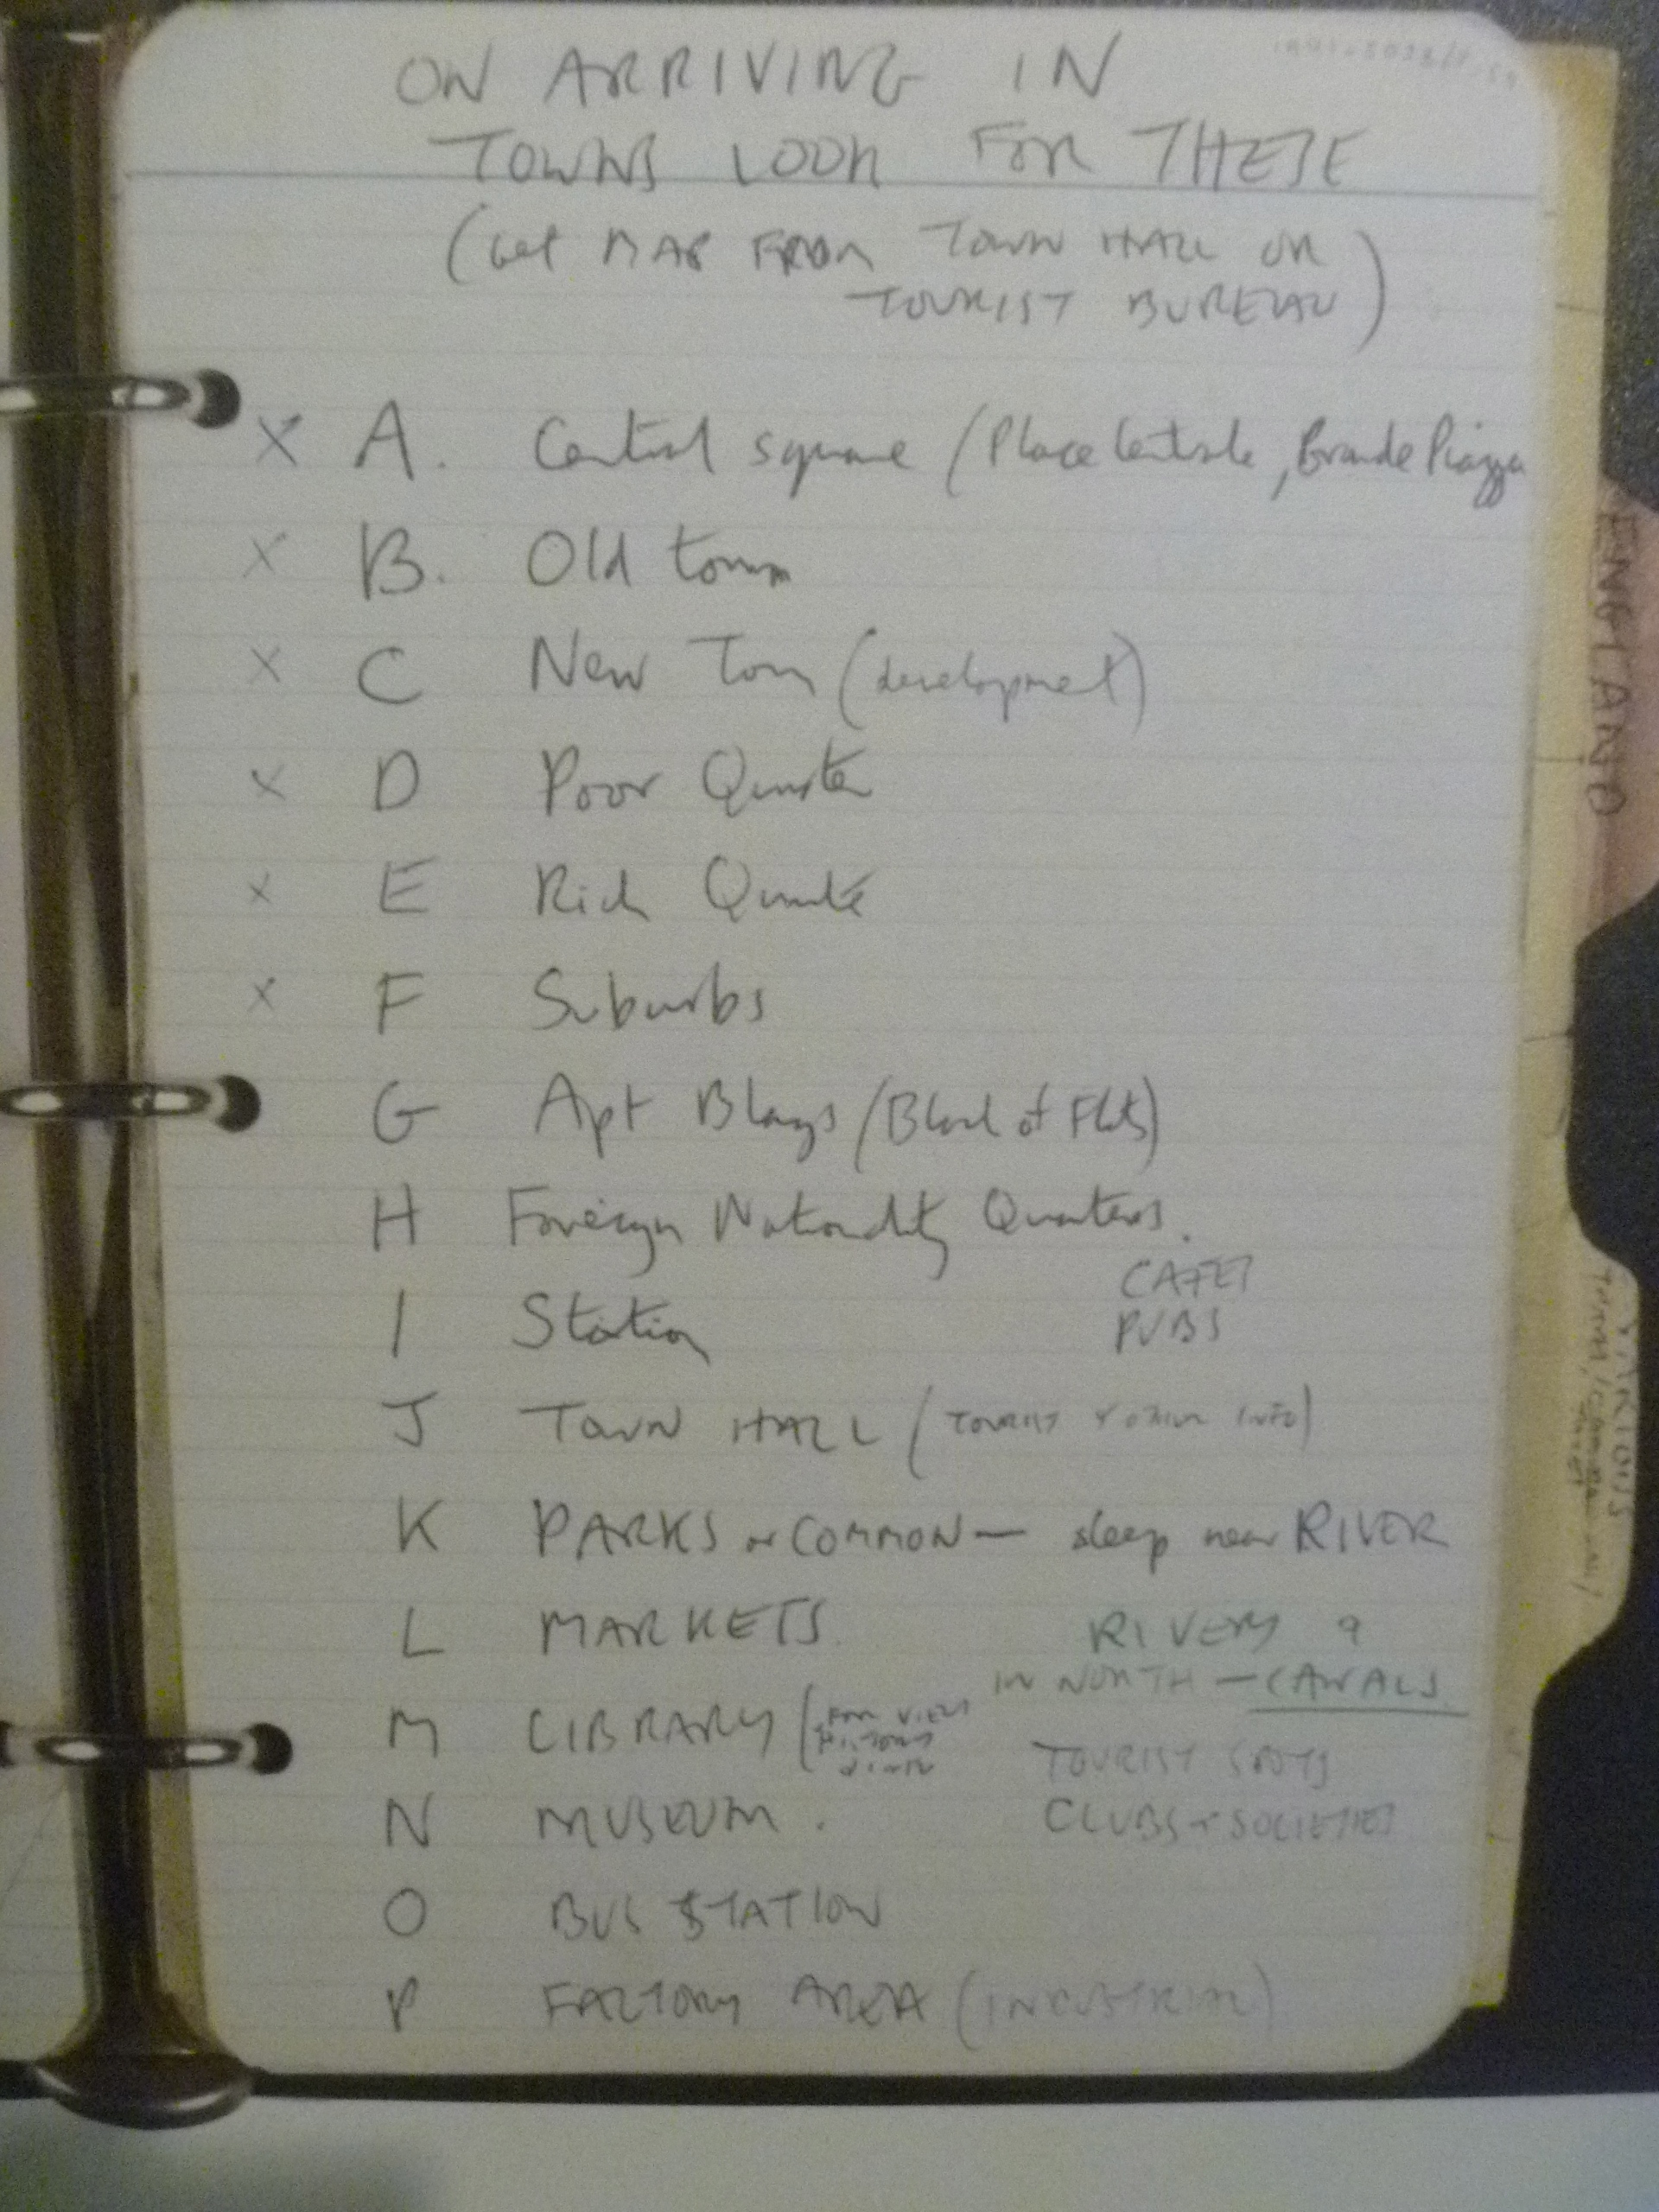 ON ARRIVING IN
TOWNS LOOK FOR THESE
(Get MAP FROM TOWN HALL OR
TOURIST BUREAU)
X A. Central square (Place Centrale, Grande Piazza
X B. Old town
X C New Town (development)
X D Poor Quarter
X E Rich Quarter
X F Suburbs
G Apt Bldgs (Block of Flats)
H Foreign Nationality Quarters.
CAFES
I Station
PUBS
J TOWN HALL (TOURIST & OTHER INFO)
K PARKS or COMMON — sleep near RIVER
L MARKETS
RIVERS &
IN NORTH — CANALS
M LIBRARY (FOR VIEWS
HISTORY
TOURIST SPOTS
N MUSEUM.
CLUBS + SOCIETIES
O BUS STATION
P FACTORY AREA (INDUSTRIAL)
ENGLAND
VARIOUS